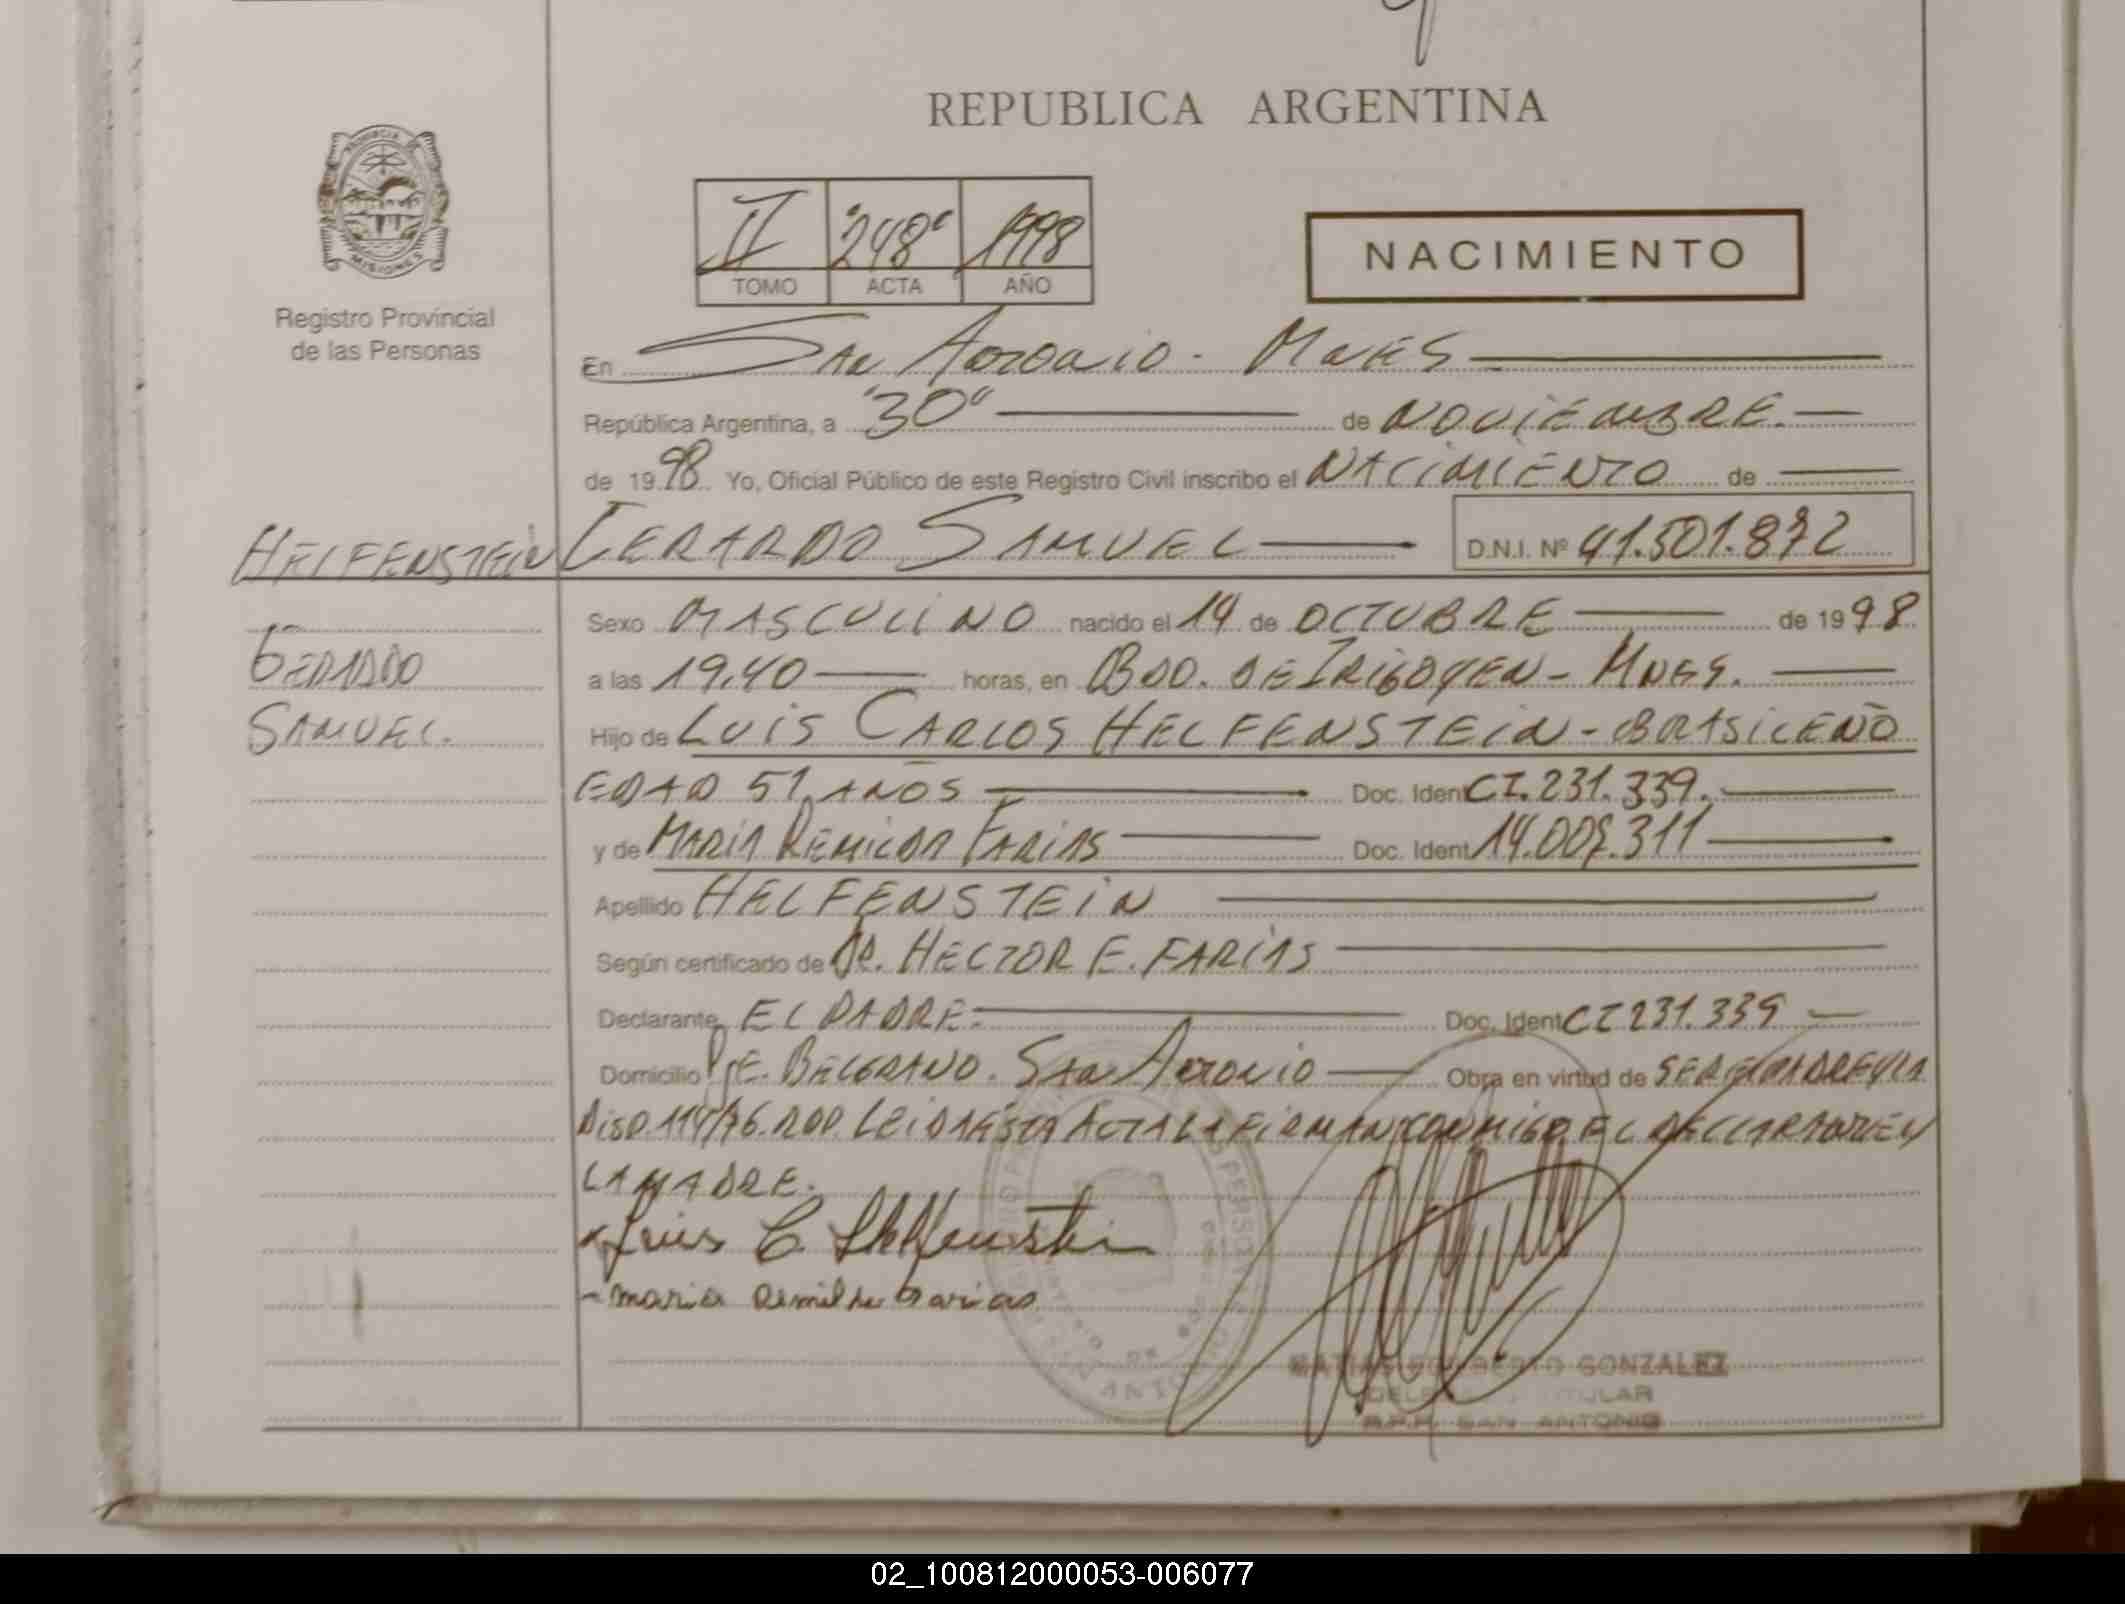 REPUBLICA ARGENTINA
PROVINCIA DE
MISIONES
Registro Provincial
de las Personas
II "248" 1998
TOMO ACTA AÑO
NACIMIENTO
En San Antonio - Mnes
República Argentina, a "30" de NOVIEMBRE.
de 1998 Yo, Oficial Público de este Registro Civil inscribo el NACIMIENTO de
HELFENSTEIN
GERARDO
SAMUEL.
GERARDO SAMUEL D.N.I. Nº 41.501.872
Sexo MASCULINO nacido el 14 de OCTUBRE de 1998
a las 19,40 horas, en BDO. DE IRIGOYEN - MNES.
Hijo de LUIS CARLOS HELFENSTEIN - BRASILEÑO
EDAD 51 AÑOS Doc. Ident CI. 231.339.
y de MARIA REMILDA FARIAS Doc. Ident 14.007.311
Apellido HELFENSTEIN
Según certificado de DR. HECTOR E. FARIAS
Declarante EL PADRE. Doc. Ident CI 231.339
Domicilio Pje. BELGRANO. SAN ANTONIO Obra en virtud de SER EL PADRE Y LA
DISP. 114/76. RPP. LEIDA ESTA ACTA LA FIRMAN CONMIGO EL DECLARANTE Y
LA MADRE.
Luis C. Helfenstein
maria Remilda Farias
MATIAS GONZALEZ
TITULAR
R.P.P. SAN ANTONIO
02_100812000053-006077